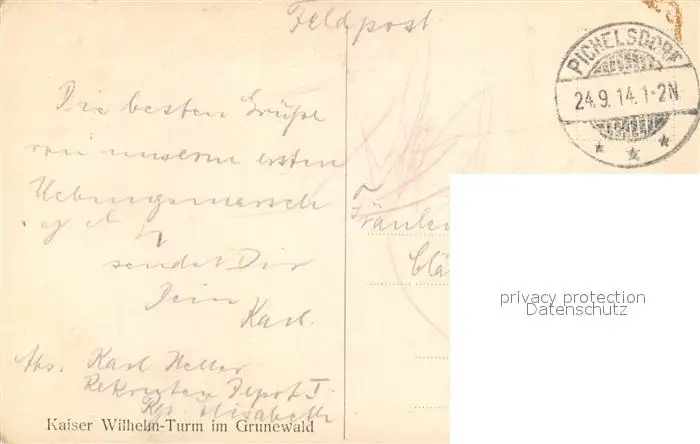 Feldpost
PICHELSDORF
24.9.14.1-2N.
Die besten Grüße
von unserm ersten
Uebungsmarsch
sendet Dir
Dein
Karl.
Fräulein
Clä
privacy protection
Datenschutz
Abs. Karl Heller
Rekruten Depot I
Rgt. Elisabeth
Kaiser Wilhelm-Turm im Grunewald